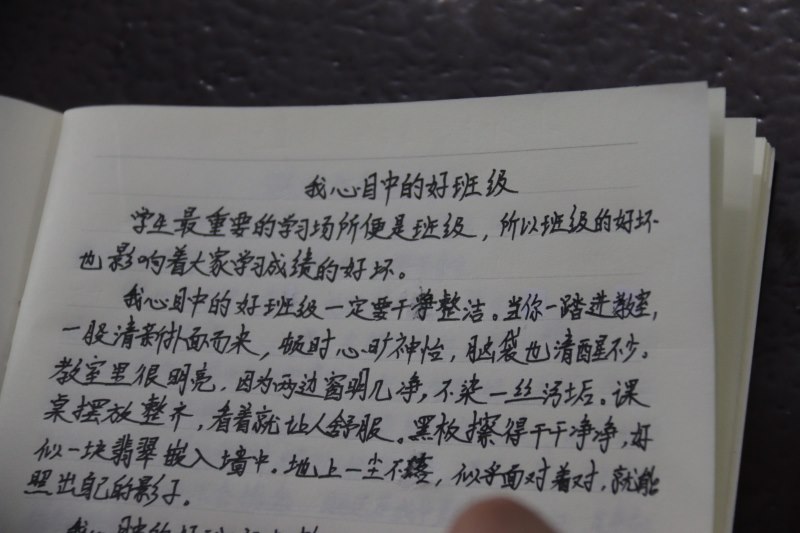 我心目中的好班级
学生最重要的学习场所便是班级，所以班级的好坏
也影响着大家学习成绩的好坏。
我心目中的好班级一定要干净整洁。当你一踏进教室，
一股清新扑面而来，顿时心旷神怡，脑袋也清醒不少。
教室里很明亮，因为两边窗明几净，不染一丝污垢。课
桌摆放整齐，看着就让人舒服。黑板擦得干干净净，好
似一块翡翠嵌入墙中。地上一尘不染，似乎面对着对，就能
照出自己的影子。
我心目中的好班级